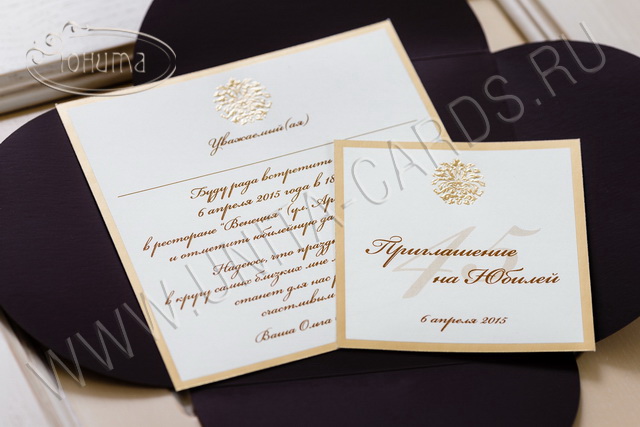 Юнита
Уважаемый(ая)
Буду рада встретить
6 апреля 2015 года в 18
в ресторане "Венеция" (ул.
и отметить юбилейную да
Надеюсь, что празд
в кругу самых близких мне
станет для нас
счастливым
Ваша Ольга
45
Приглашение
на Юбилей
6 апреля 2015
WWW.UNITA-CARDS.RU